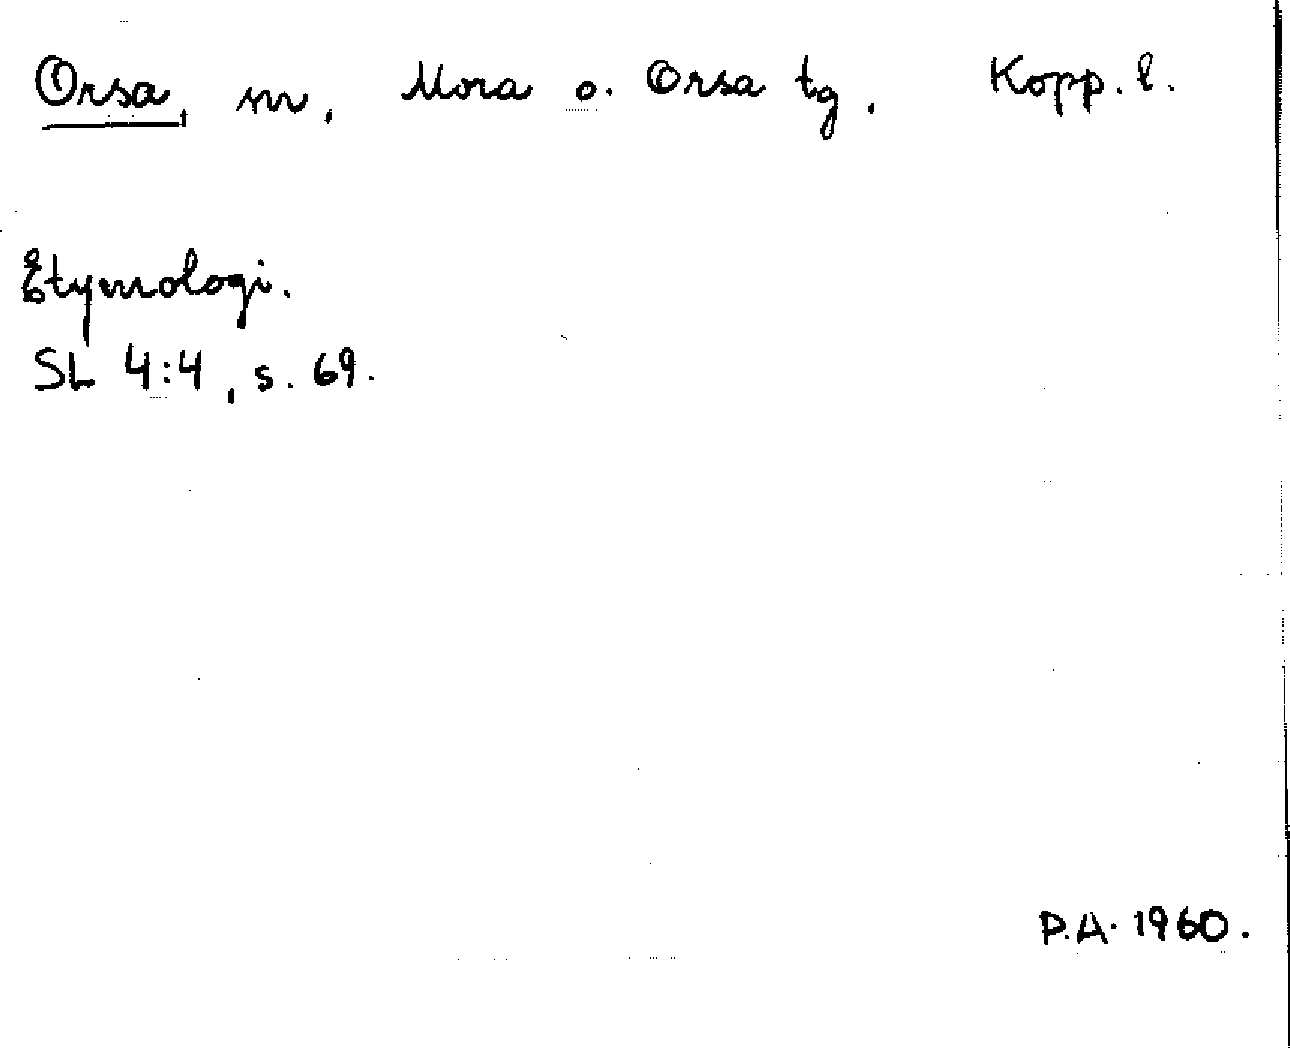 Orsa, sn, Mora o. Orsa tg, Kopp. l.
Etymologi.
SL 4:4, s. 69.
P.A. 1960.